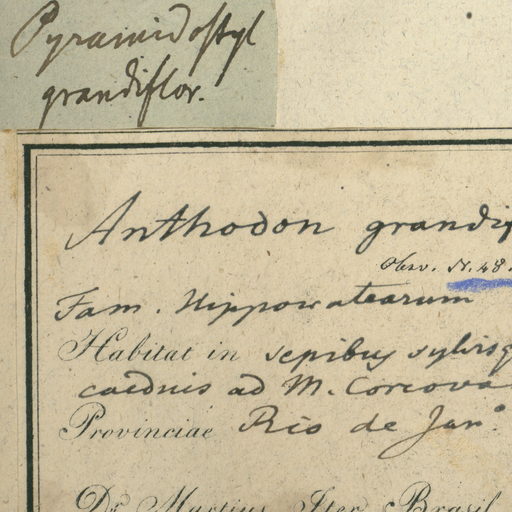 Pyramidostyl
grandiflor.
Anthodon grandif
Obsv. N. 48.
Fam. Hippocratearum
Habitat in sepibus sylvisq
caeduis ad M. Corcova
Provinciae Rio de Jan.°
Dr. Martius Iter Brasil